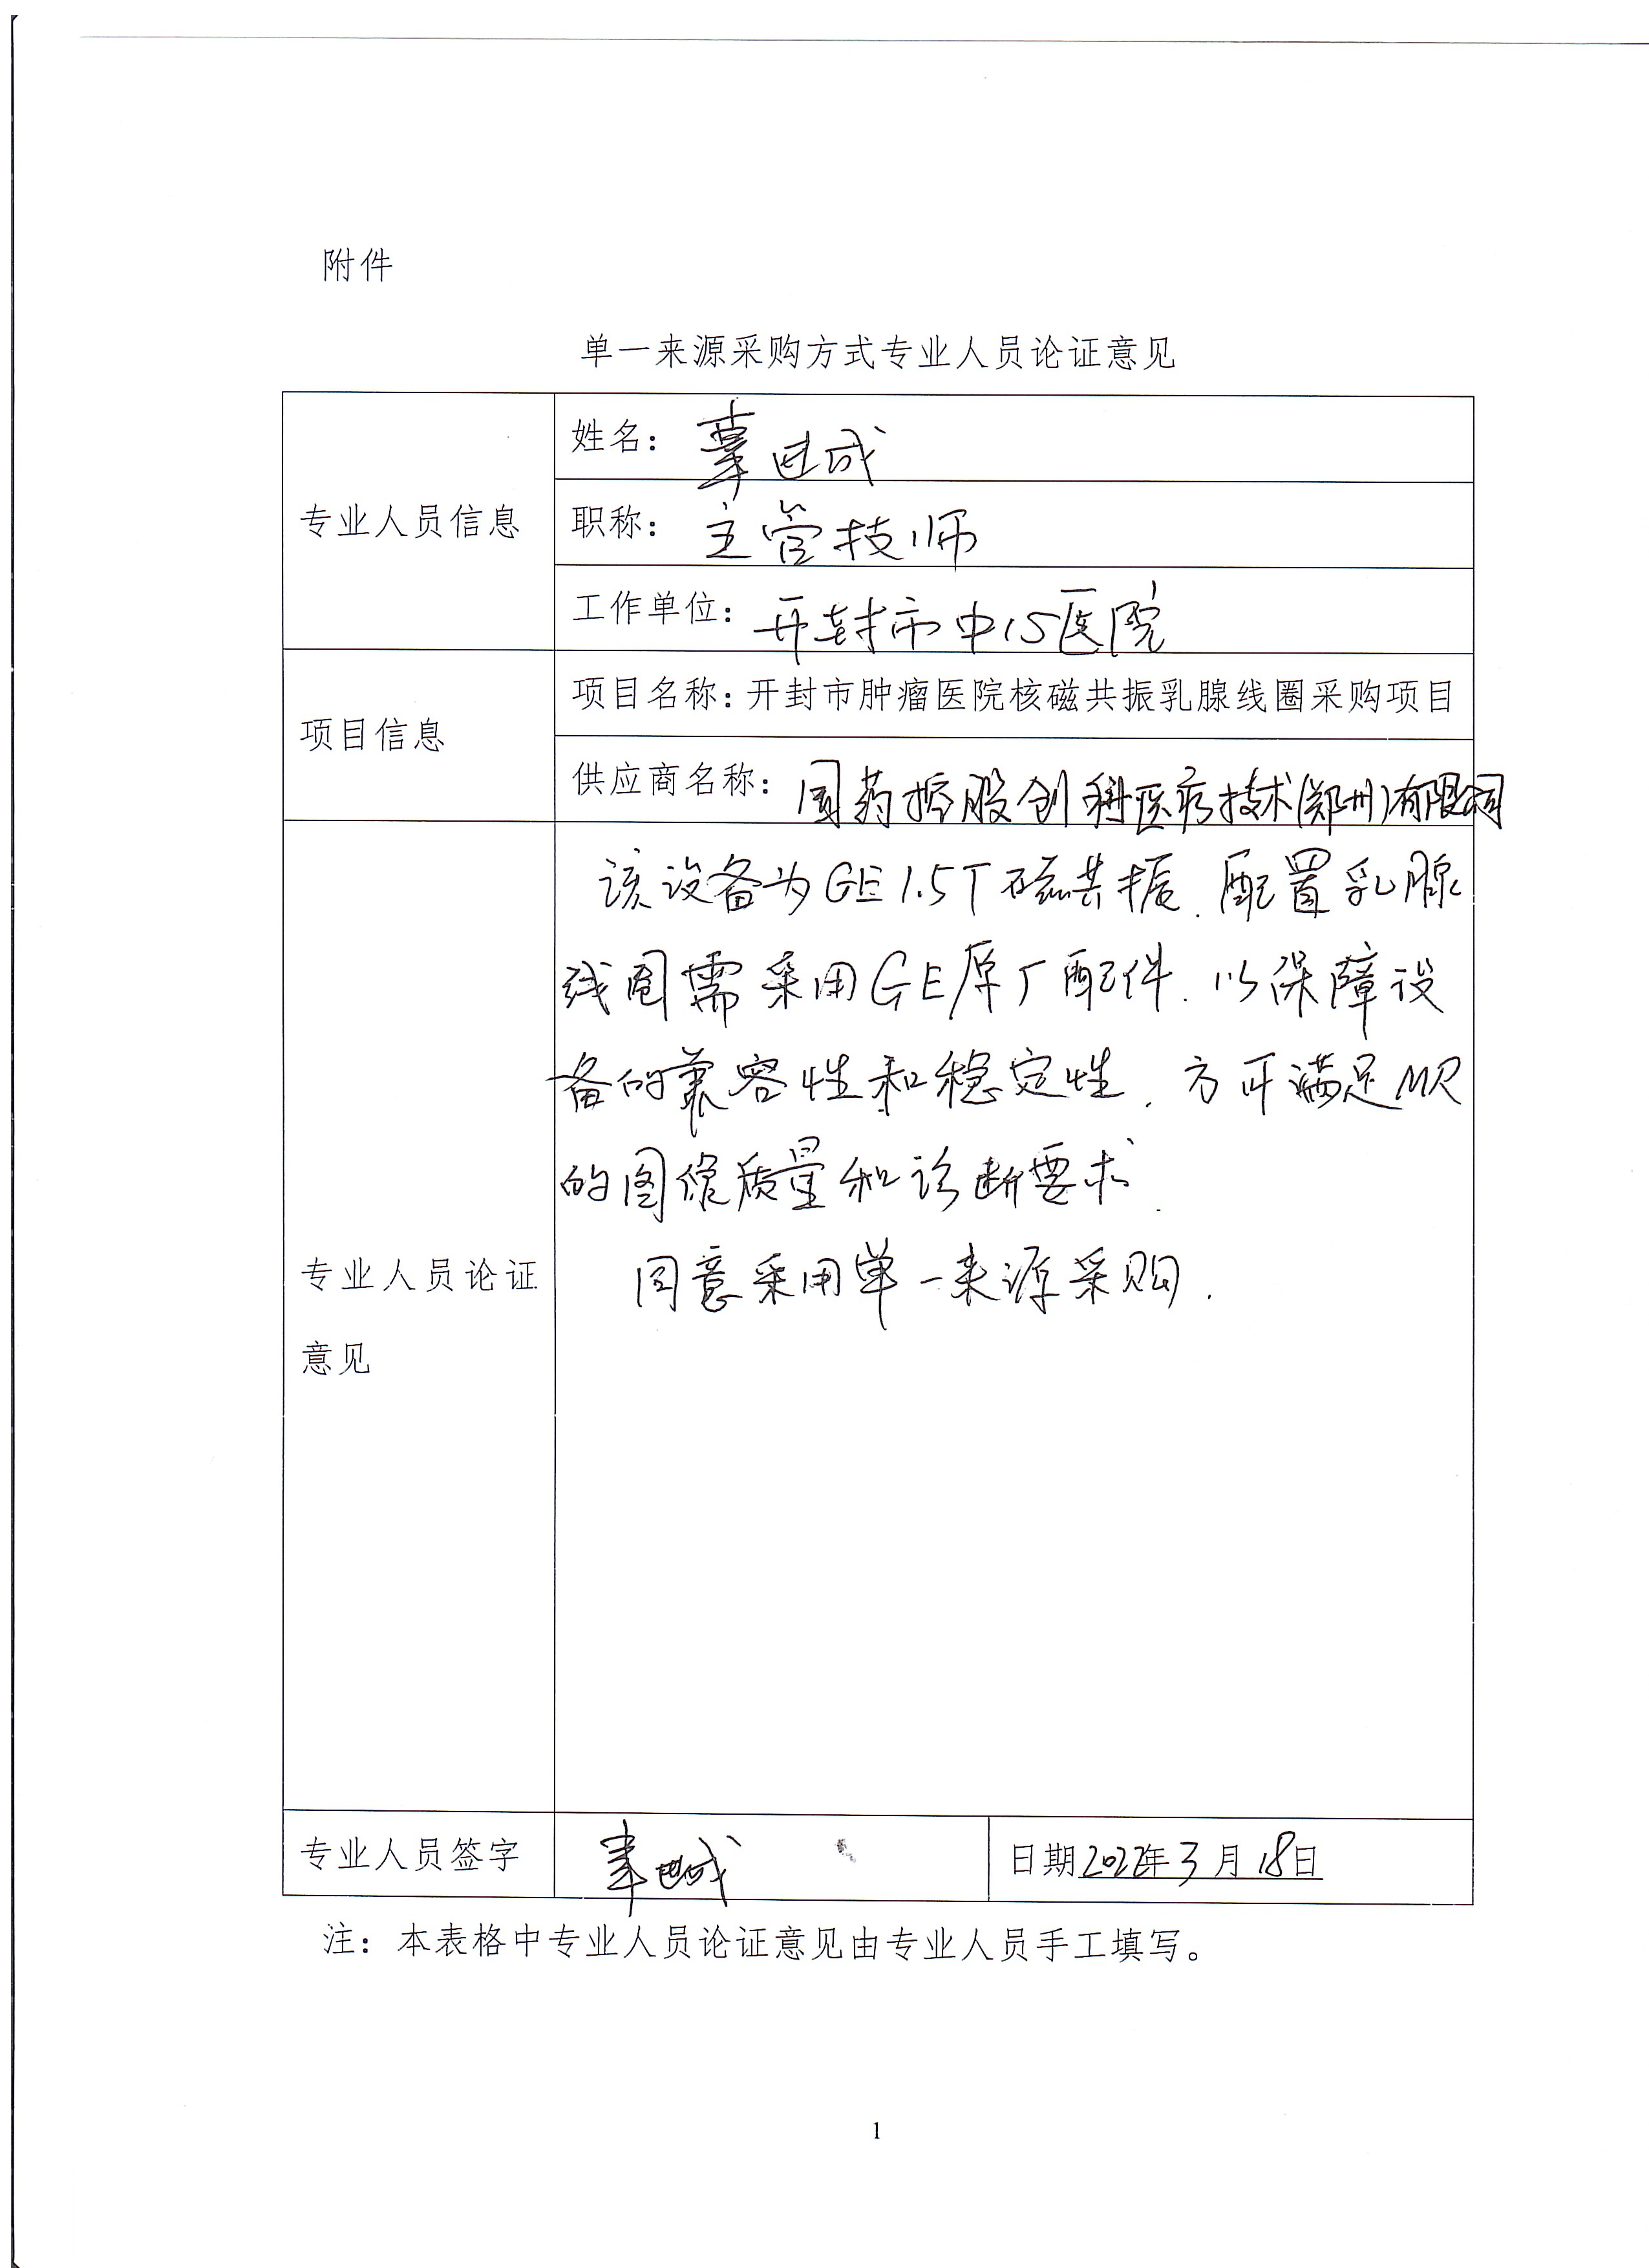 附件
单一来源采购方式专业人员论证意见
专业人员信息
姓名：世成
职称：主管技师
工作单位：开封市中心医院
项目信息
项目名称：开封市肿瘤医院核磁共振乳腺线圈采购项目
供应商名称：国药控股创科医疗技术(郑州)有限公司
专业人员论证
意见
该设备为GE1.5T磁共振.配置乳腺
线圈需采用GE原厂配件.以保障设
备的兼容性和稳定性.方可满足MR
的图像质量和诊断要求.
同意采用单一来源采购.
专业人员签字
世成
日期2022年3月18日
注：本表格中专业人员论证意见由专业人员手工填写。
1